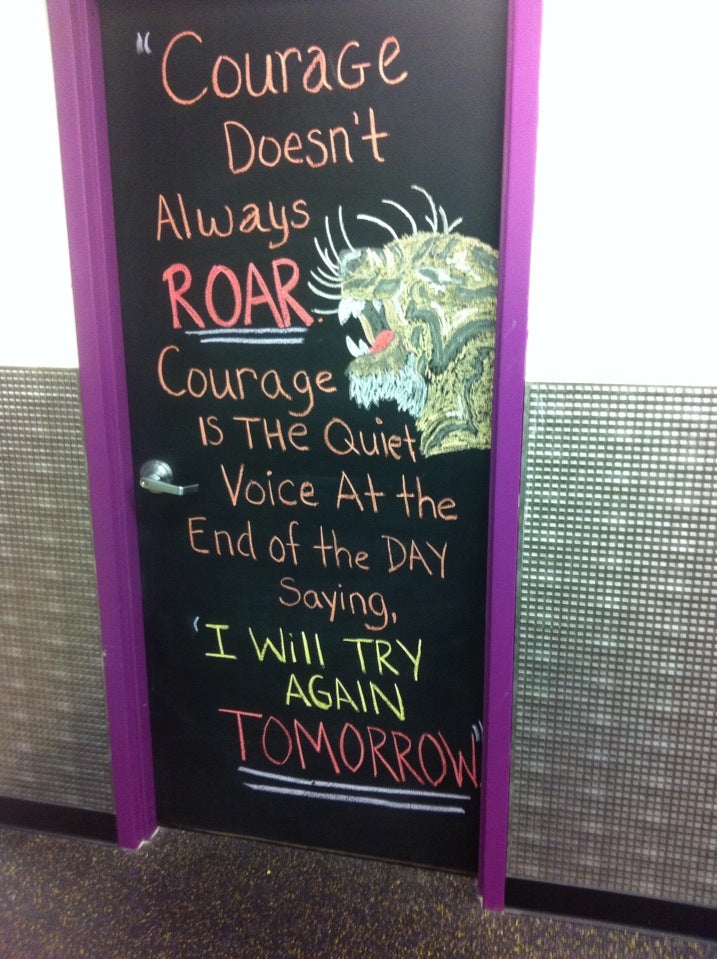 "Courage
Doesn't
Always
ROAR.
Courage
IS THE Quiet
Voice At the
End of the DAY
Saying,
'I Will TRY
AGAIN
TOMORROW"